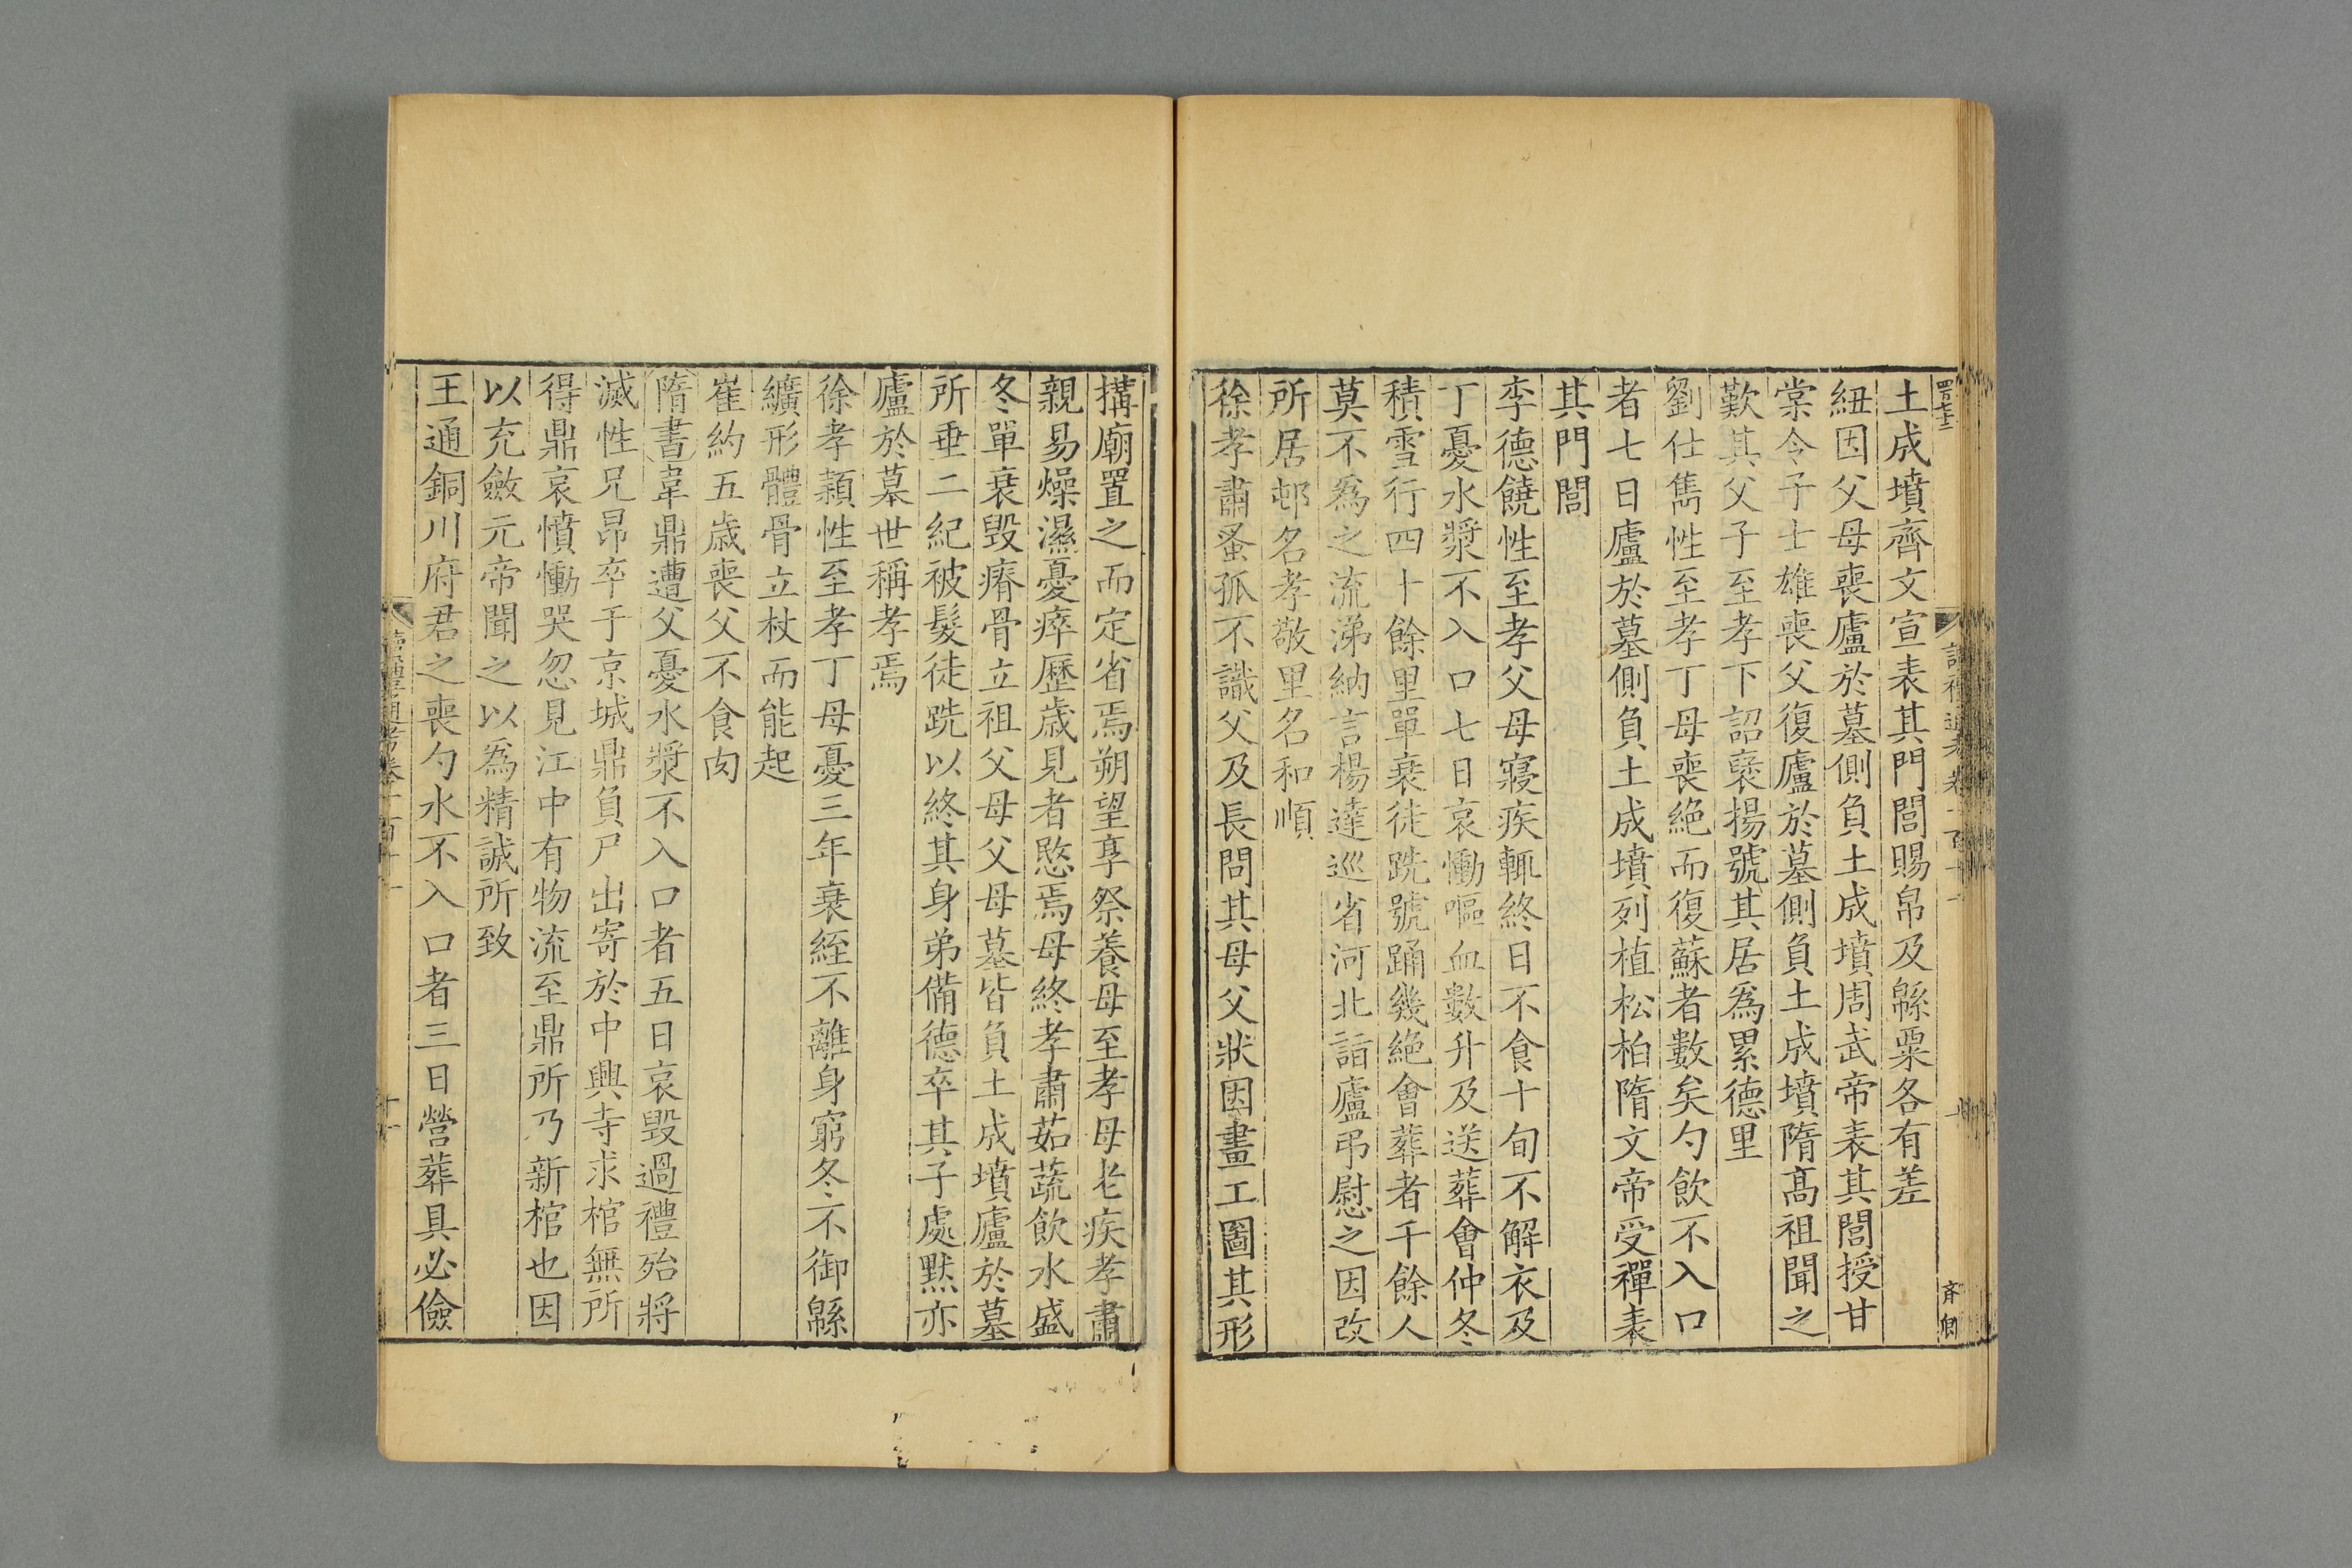 土成墳齊文宣表其門閭賜帛及緜粟各有差
紐因父母喪廬於墓側負土成墳周武帝表其閭授甘
棠令子士雄喪父復廬於墓側負土成墳隋髙祖聞之
歎其父子至孝下詔襃揚號其居爲累德里
劉仕儁性至孝丁母喪絶而復蘇者數矣勺飲不入口
者七日廬於墓側負土成墳列植松柏隋文帝受禪表
其門閭
李德饒性至孝父母寢疾輒終日不食十旬不解衣及
丁憂水漿不入口七日哀慟嘔血數升及送葬會仲冬
積雪行四十餘里單衰徒跣號踊幾絶會葬者千餘人
莫不爲之流涕納言楊達巡省河北詣廬弔慰之因改
所居邨名孝敬里名和順
徐孝肅蚤孤不識父及長問其母父狀因畫工圖其形
搆廟置之而定省焉朔望享祭養母至孝母老疾孝肅
親易燥濕憂瘁歷歲見者愍焉母終孝肅茹蔬飲水盛
冬單衰毀瘠骨立祖父母父母墓皆負土成墳廬於墓
所垂二紀被髮徒跣以終其身弟備德卒其子處默亦
廬於墓世稱孝焉
徐孝顈性至孝丁母憂三年衰絰不離身窮冬不御緜
纊形體骨立杖而能起
崔約五歲喪父不食肉
隋書韋鼎遭父憂水漿不入口者五日哀毀過禮殆將
滅性兄昂卒于京城鼎負尸出寄於中興寺求棺無所
得鼎哀憤慟哭忽見江中有物流至鼎所乃新棺也因
以充斂元帝聞之以爲精誠所致
王通銅川府君之喪勺水不入口者三日營葬具必儉